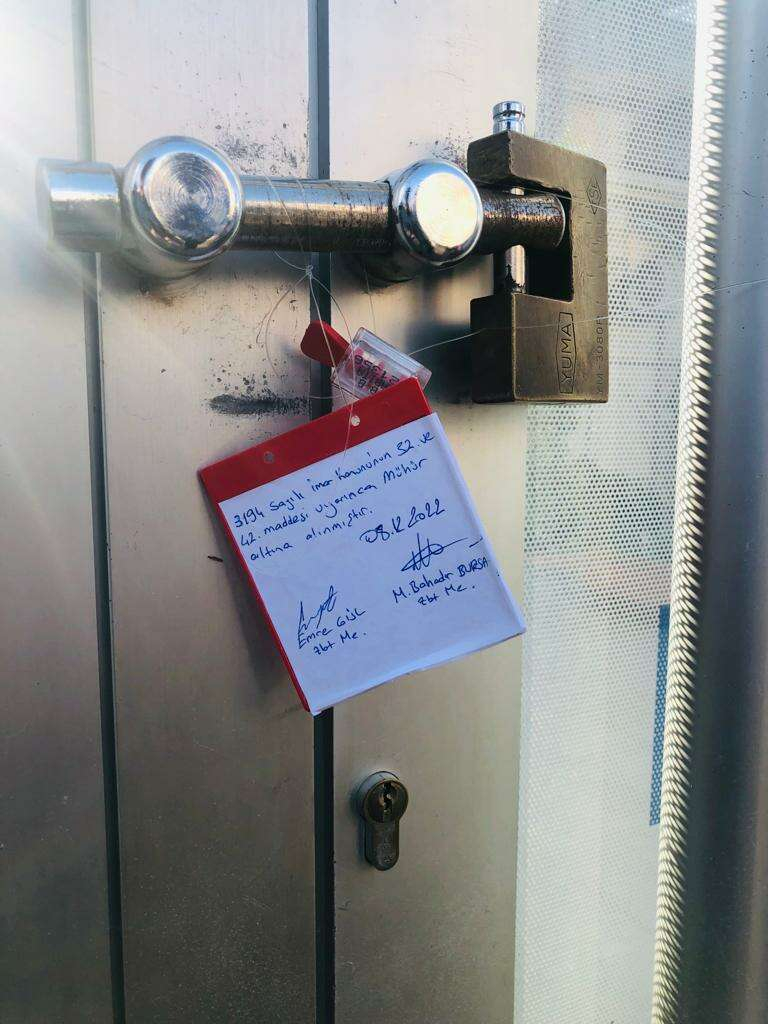 YUMA
3194 Sayılı imar Kanununun 32. ve
42. maddesi uyarınca Mühür
altına alınmıştır.
08.12.2022
Emre
zbt Me.
M. Bahadır BURSA
zbt Me.